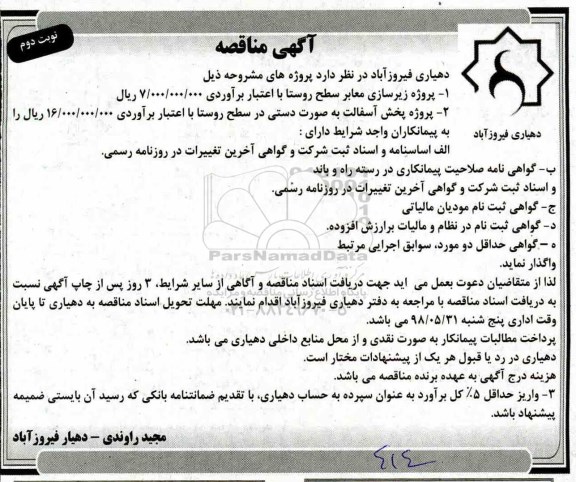 نوبت دوم
آگهی مناقصه
دهیاری فیروزآباد
دهیاری فیروزآباد در نظر دارد پروژه های مشروحه ذیل
۱- پروژه زیرسازی معابر سطح روستا با اعتبار برآوردی ۷/۰۰۰/۰۰۰/۰۰۰ ریال
۲- پروژه پخش آسفالت به صورت دستی در سطح روستا با اعتبار برآوردی ۱۶/۰۰۰/۰۰۰/۰۰۰ ریال را
به پیمانکاران واجد شرایط دارای :
الف اساسنامه و اسناد ثبت شرکت و گواهی آخرین تغییرات در روزنامه رسمی.
ب- گواهی نامه صلاحیت پیمانکاری در رسته راه و باند
و اسناد ثبت شرکت و گواهی آخرین تغییرات در روزنامه رسمی.
ج- گواهی ثبت نام مودیان مالیاتی
د- گواهی ثبت نام در نظام و مالیات برارزش افزوده.
ه – گواهی حداقل دو مورد، سوابق اجرایی مرتبط
واگذار نماید.
ParsNamadData
لذا از متقاضیان دعوت بعمل می آید جهت دریافت اسناد مناقصه و آگاهی از سایر شرایط، ۳ روز پس از چاپ آگهی نسبت
به دریافت اسناد مناقصه با مراجعه به دفتر دهیاری فیروزآباد اقدام نمایند. مهلت تحویل اسناد مناقصه به دهیاری تا پایان
وقت اداری پنج شنبه ۹۸/۰۵/۳۱ می باشد.
پرداخت مطالبات پیمانکار به صورت نقدی و از محل منابع داخلی دهیاری می باشد.
دهیاری در رد یا قبول هر یک از پیشنهادات مختار است.
هزینه درج آگهی به عهده برنده مناقصه می باشد.
۳- واریز حداقل ۵٪ کل برآورد به عنوان سپرده به حساب دهیاری، با تقدیم ضمانتنامه بانکی که رسید آن بایستی ضمیمه
پیشنهاد باشد.
مجید راوندی – دهیار فیروزآباد